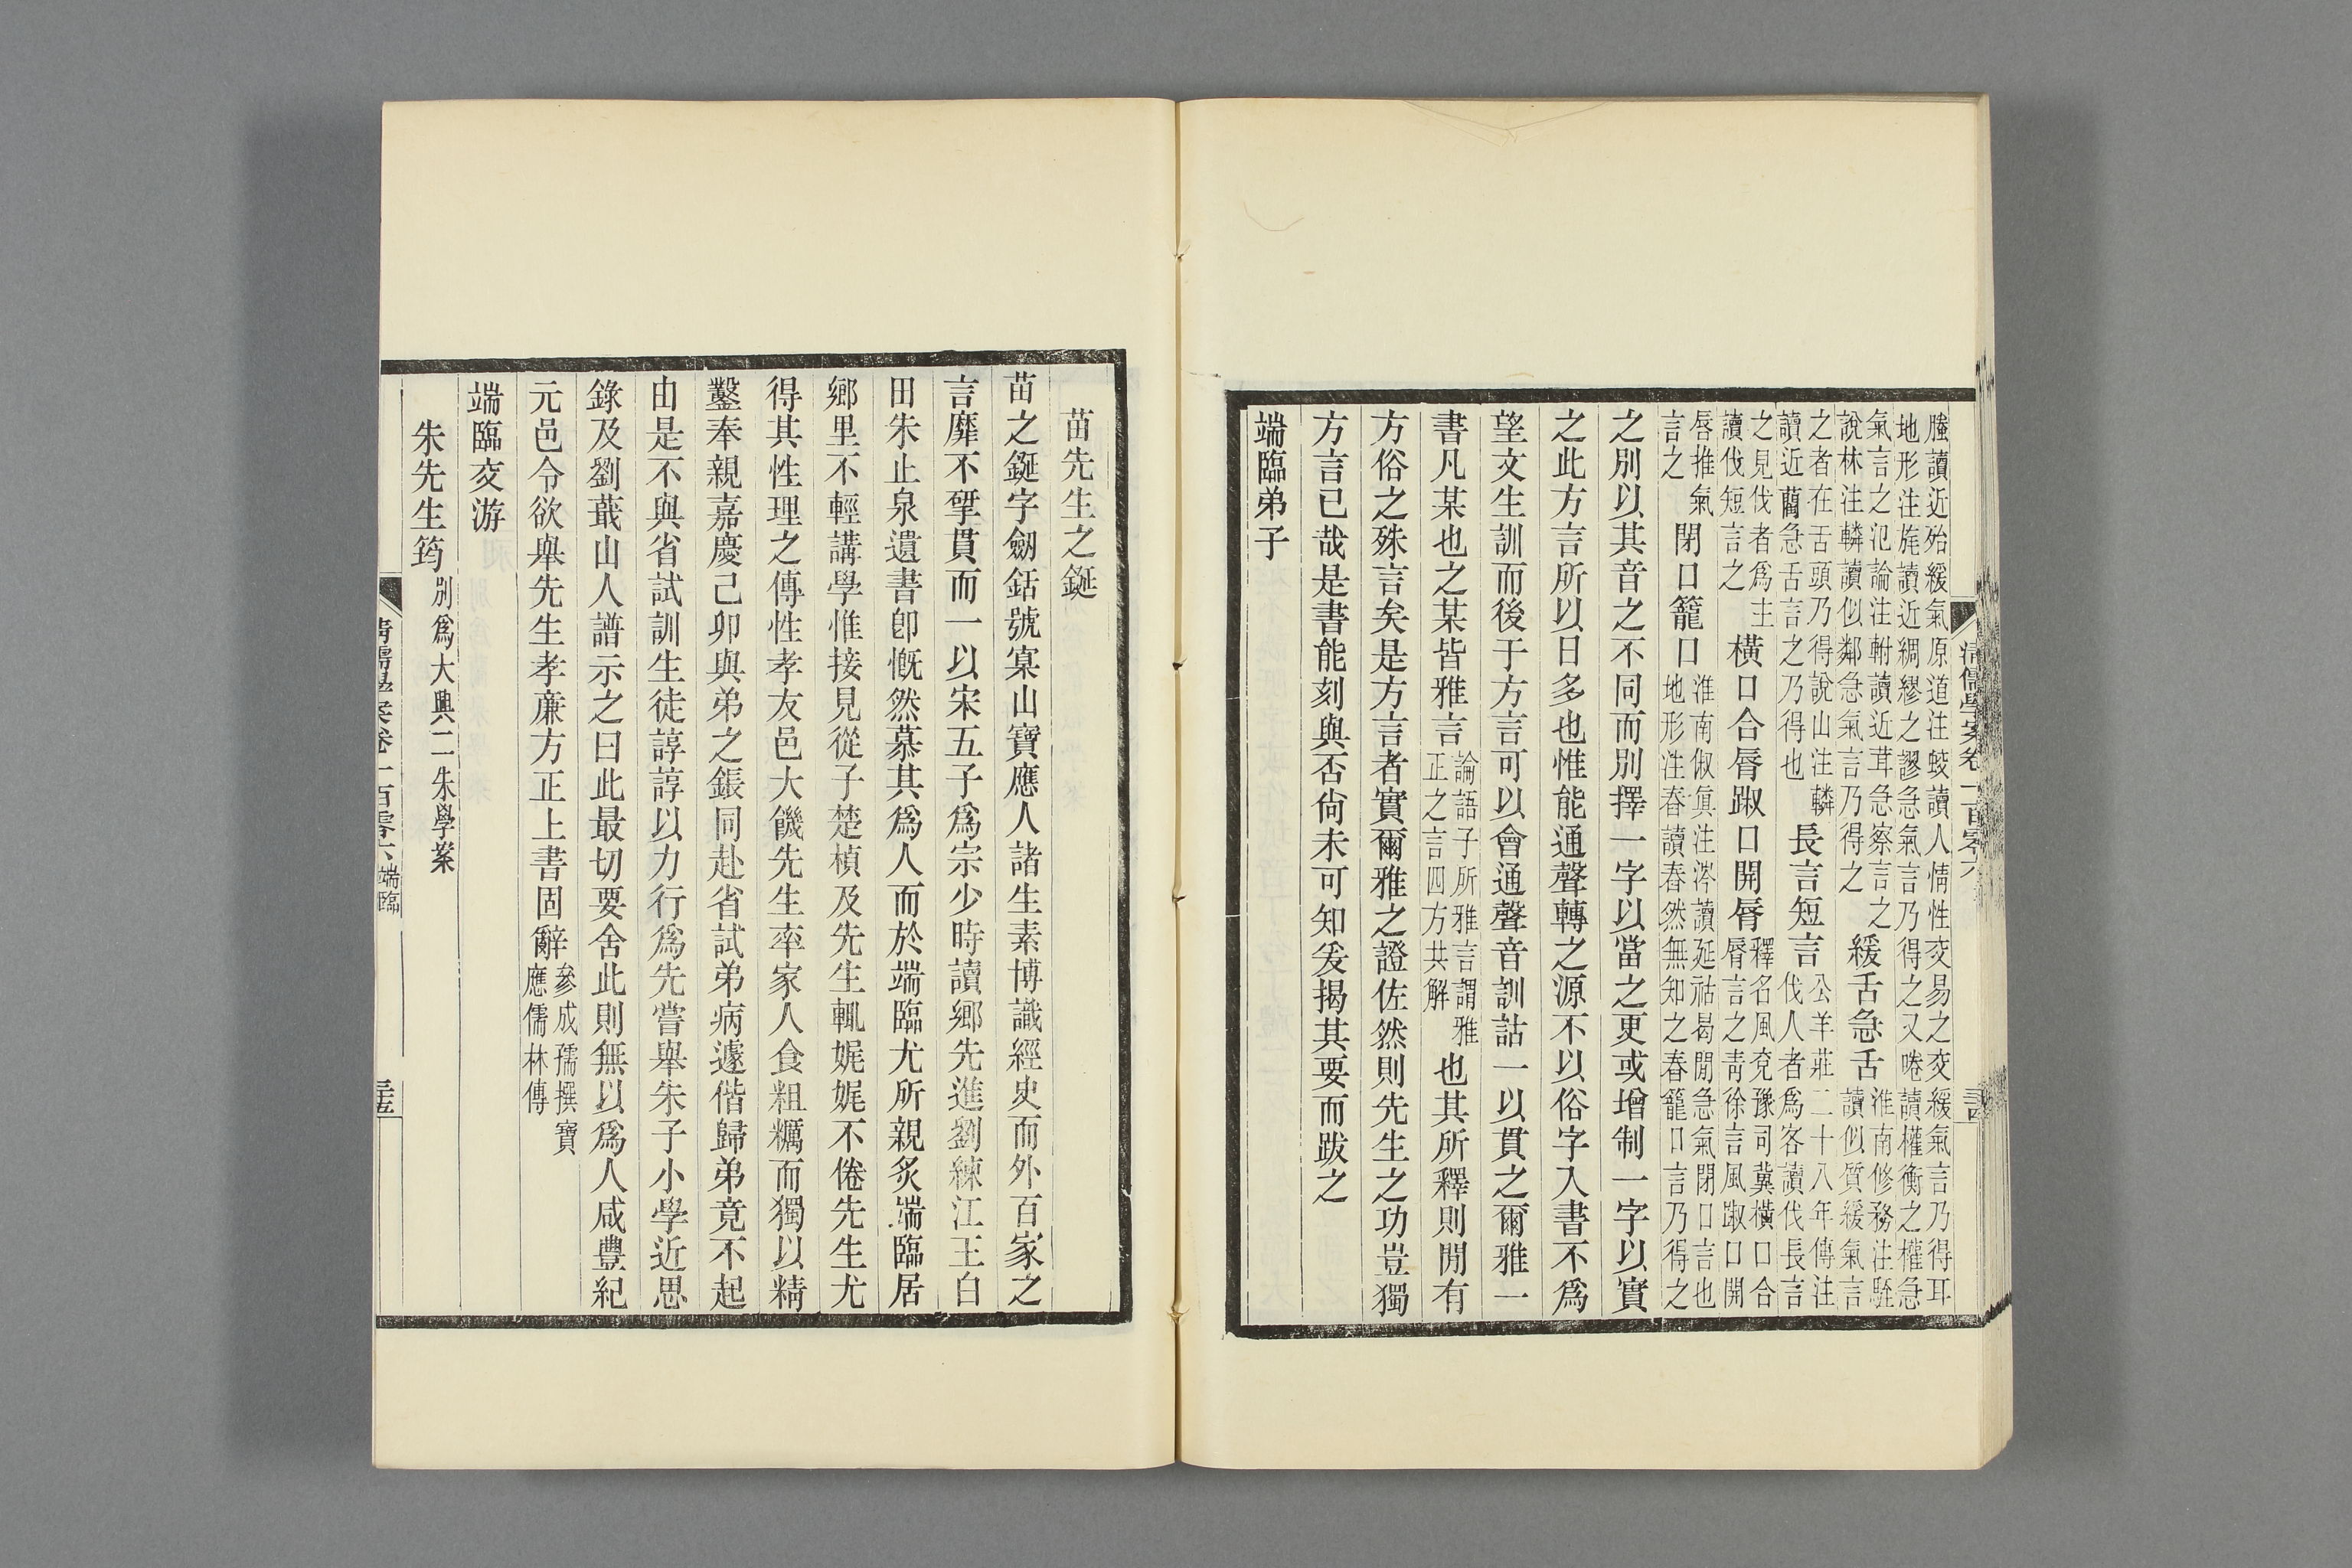 螣讀近殆緩氣原道注蛟讀人情性交易之交緩氣言乃得耳
地形注旄讀近綢繆之謬急氣言乃得之又㗖讀權衡之權急
氣言之氾論注軵讀近茸急察言之
說林注轔讀似鄰急氣言乃得之
緩舌急舌
淮南修務注駤
讀似質緩氣言
之者在舌頭乃得說山注轔
讀近藺急舌言之乃得也
長言短言
公羊莊二十八年傳注
伐人者爲客讀伐長言
之見伐者爲主
讀伐短言之
橫口合脣踧口開脣
釋名風兗豫司冀橫口合
脣言之靑徐言風踧口開
脣推氣
言之
閉口籠口
淮南俶眞注涔讀延祜曷閒急氣閉口言也
地形注舂讀舂然無知之舂籠口言乃得之
之別以其音之不同而別擇一字以當之更或增制一字以實
之此方言所以日多也惟能通聲轉之源不以俗字入書不爲
望文生訓而後于方言可以會通聲音訓詁一以貫之爾雅一
書凡某也之某皆雅言
論語子所雅言謂雅
正之言四方共解
也其所釋則閒有
方俗之殊言矣是方言者實爾雅之證佐然則先生之功豈獨
方言已哉是書能刻與否尙未可知爰揭其要而跋之
端臨弟子
清儒學案卷一百零六
三十四
苗先生之鋋
苗之鋋字劒銛號寞山寶應人諸生素博識經史而外百家之
言靡不揅貫而一以宋五子爲宗少時讀鄉先進劉練江王白
田朱止泉遺書卽慨然慕其爲人而於端臨尤所親炙端臨居
鄉里不輕講學惟接見從子楚楨及先生輒娓娓不倦先生尤
得其性理之傳性孝友邑大饑先生率家人食粗糲而獨以精
鑿奉親嘉慶己卯與弟之鋹同赴省試弟病遽偕歸弟竟不起
由是不與省試訓生徒諄諄以力行爲先嘗舉朱子小學近思
錄及劉蕺山人譜示之曰此最切要舍此則無以爲人咸豐紀
元邑令欲舉先生孝廉方正上書固辭
參成孺撰寶
應儒林傳
端臨交游
朱先生筠
別爲大興二朱學案
清儒學案卷一百零六
端臨
三十五